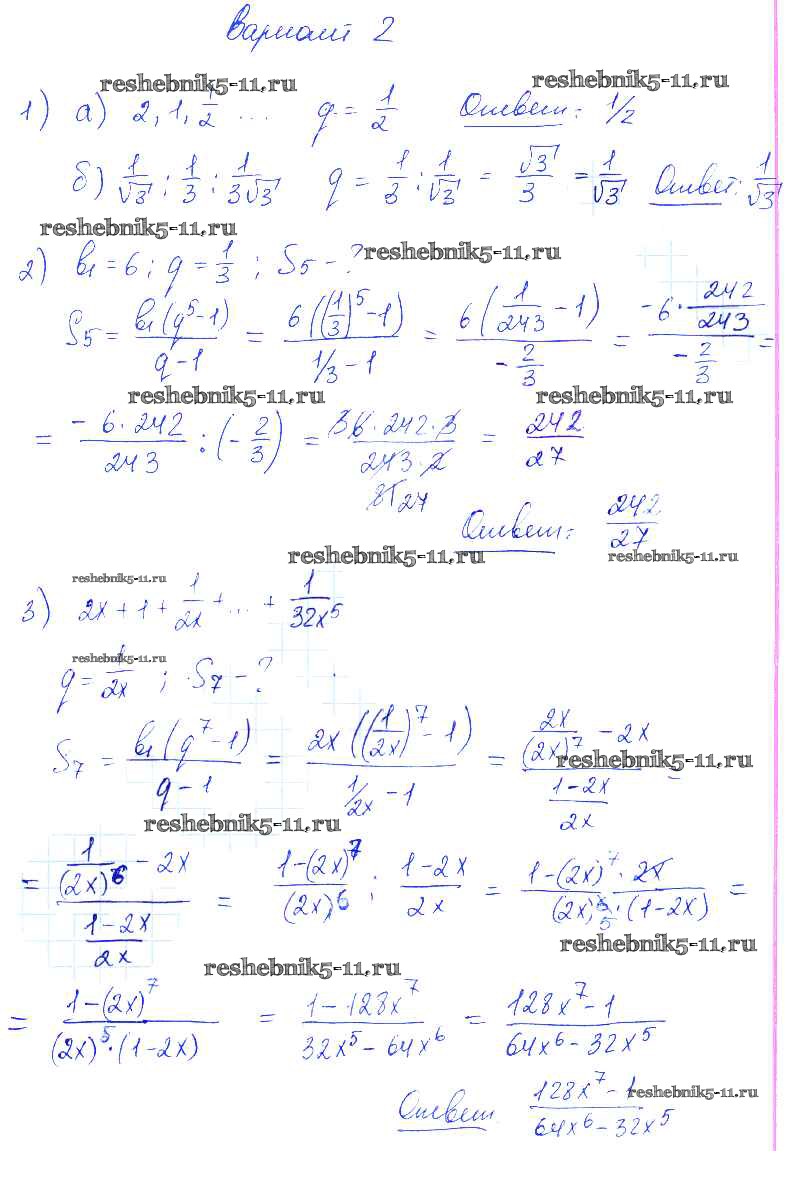 Вариант 2
reshebnik5-11.ru reshebnik5-11.ru
1) а) 2, 1, 1/2 ... q = 1/2 Ответ: 1/2
б) 1/√3 ; 1/3 ; 1/(3√3) q = 1/3 : 1/√3 = √3/3 = 1/√3 Ответ: 1/√3
reshebnik5-11.ru reshebnik5-11.ru
2) b1 = 6 ; q = 1/3 ; S5 - ?
S5 = b1(q^5-1)/(q-1) = 6((1/3)^5-1)/(1/3-1) = 6(1/243-1)/(-2/3) = (-6·242/243)/(-2/3) =
reshebnik5-11.ru reshebnik5-11.ru
= -6·242/243 : (-2/3) = 36·242·3/(243·2) = 242/27
81 27
Ответ: 242/27
reshebnik5-11.ru reshebnik5-11.ru
reshebnik5-11.ru
3) 2x + 1 + 1/2x + ... + 1/32x^5
reshebnik5-11.ru
q = 1/2x ; S7 - ?
S7 = b1(q^7-1)/(q-1) = 2x((1/2x)^7-1)/(1/2x-1) = (2x/(2x)^7 - 2x)/((1-2x)/2x) =
reshebnik5-11.ru
reshebnik5-11.ru
= (1/(2x)^6 - 2x)/((1-2x)/2x) = (1-(2x)^7)/(2x)^6 : (1-2x)/2x = (1-(2x)^7·2x)/((2x)^6·(1-2x)) =
5
reshebnik5-11.ru
reshebnik5-11.ru
= (1-(2x)^7)/((2x)^5·(1-2x)) = (1-128x^7)/(32x^5-64x^6) = (128x^7-1)/(64x^6-32x^5)
Ответ (128x^7-1)/(64x^6-32x^5)
reshebnik5-11.ru